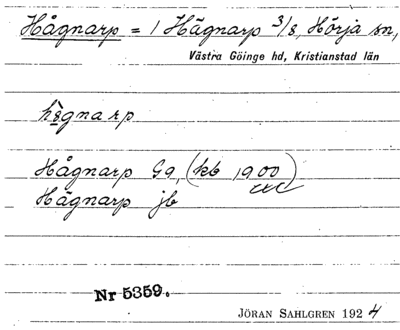 Hågnarp = 1 Hägnarp 3/8, Hörja sn,
Västra Göinge hd, Kristianstad län
hògnarp
Hågnarp Gg, (kb 1900)
Hägnarp jb
Nr 5359.
JÖRAN SAHLGREN 1924